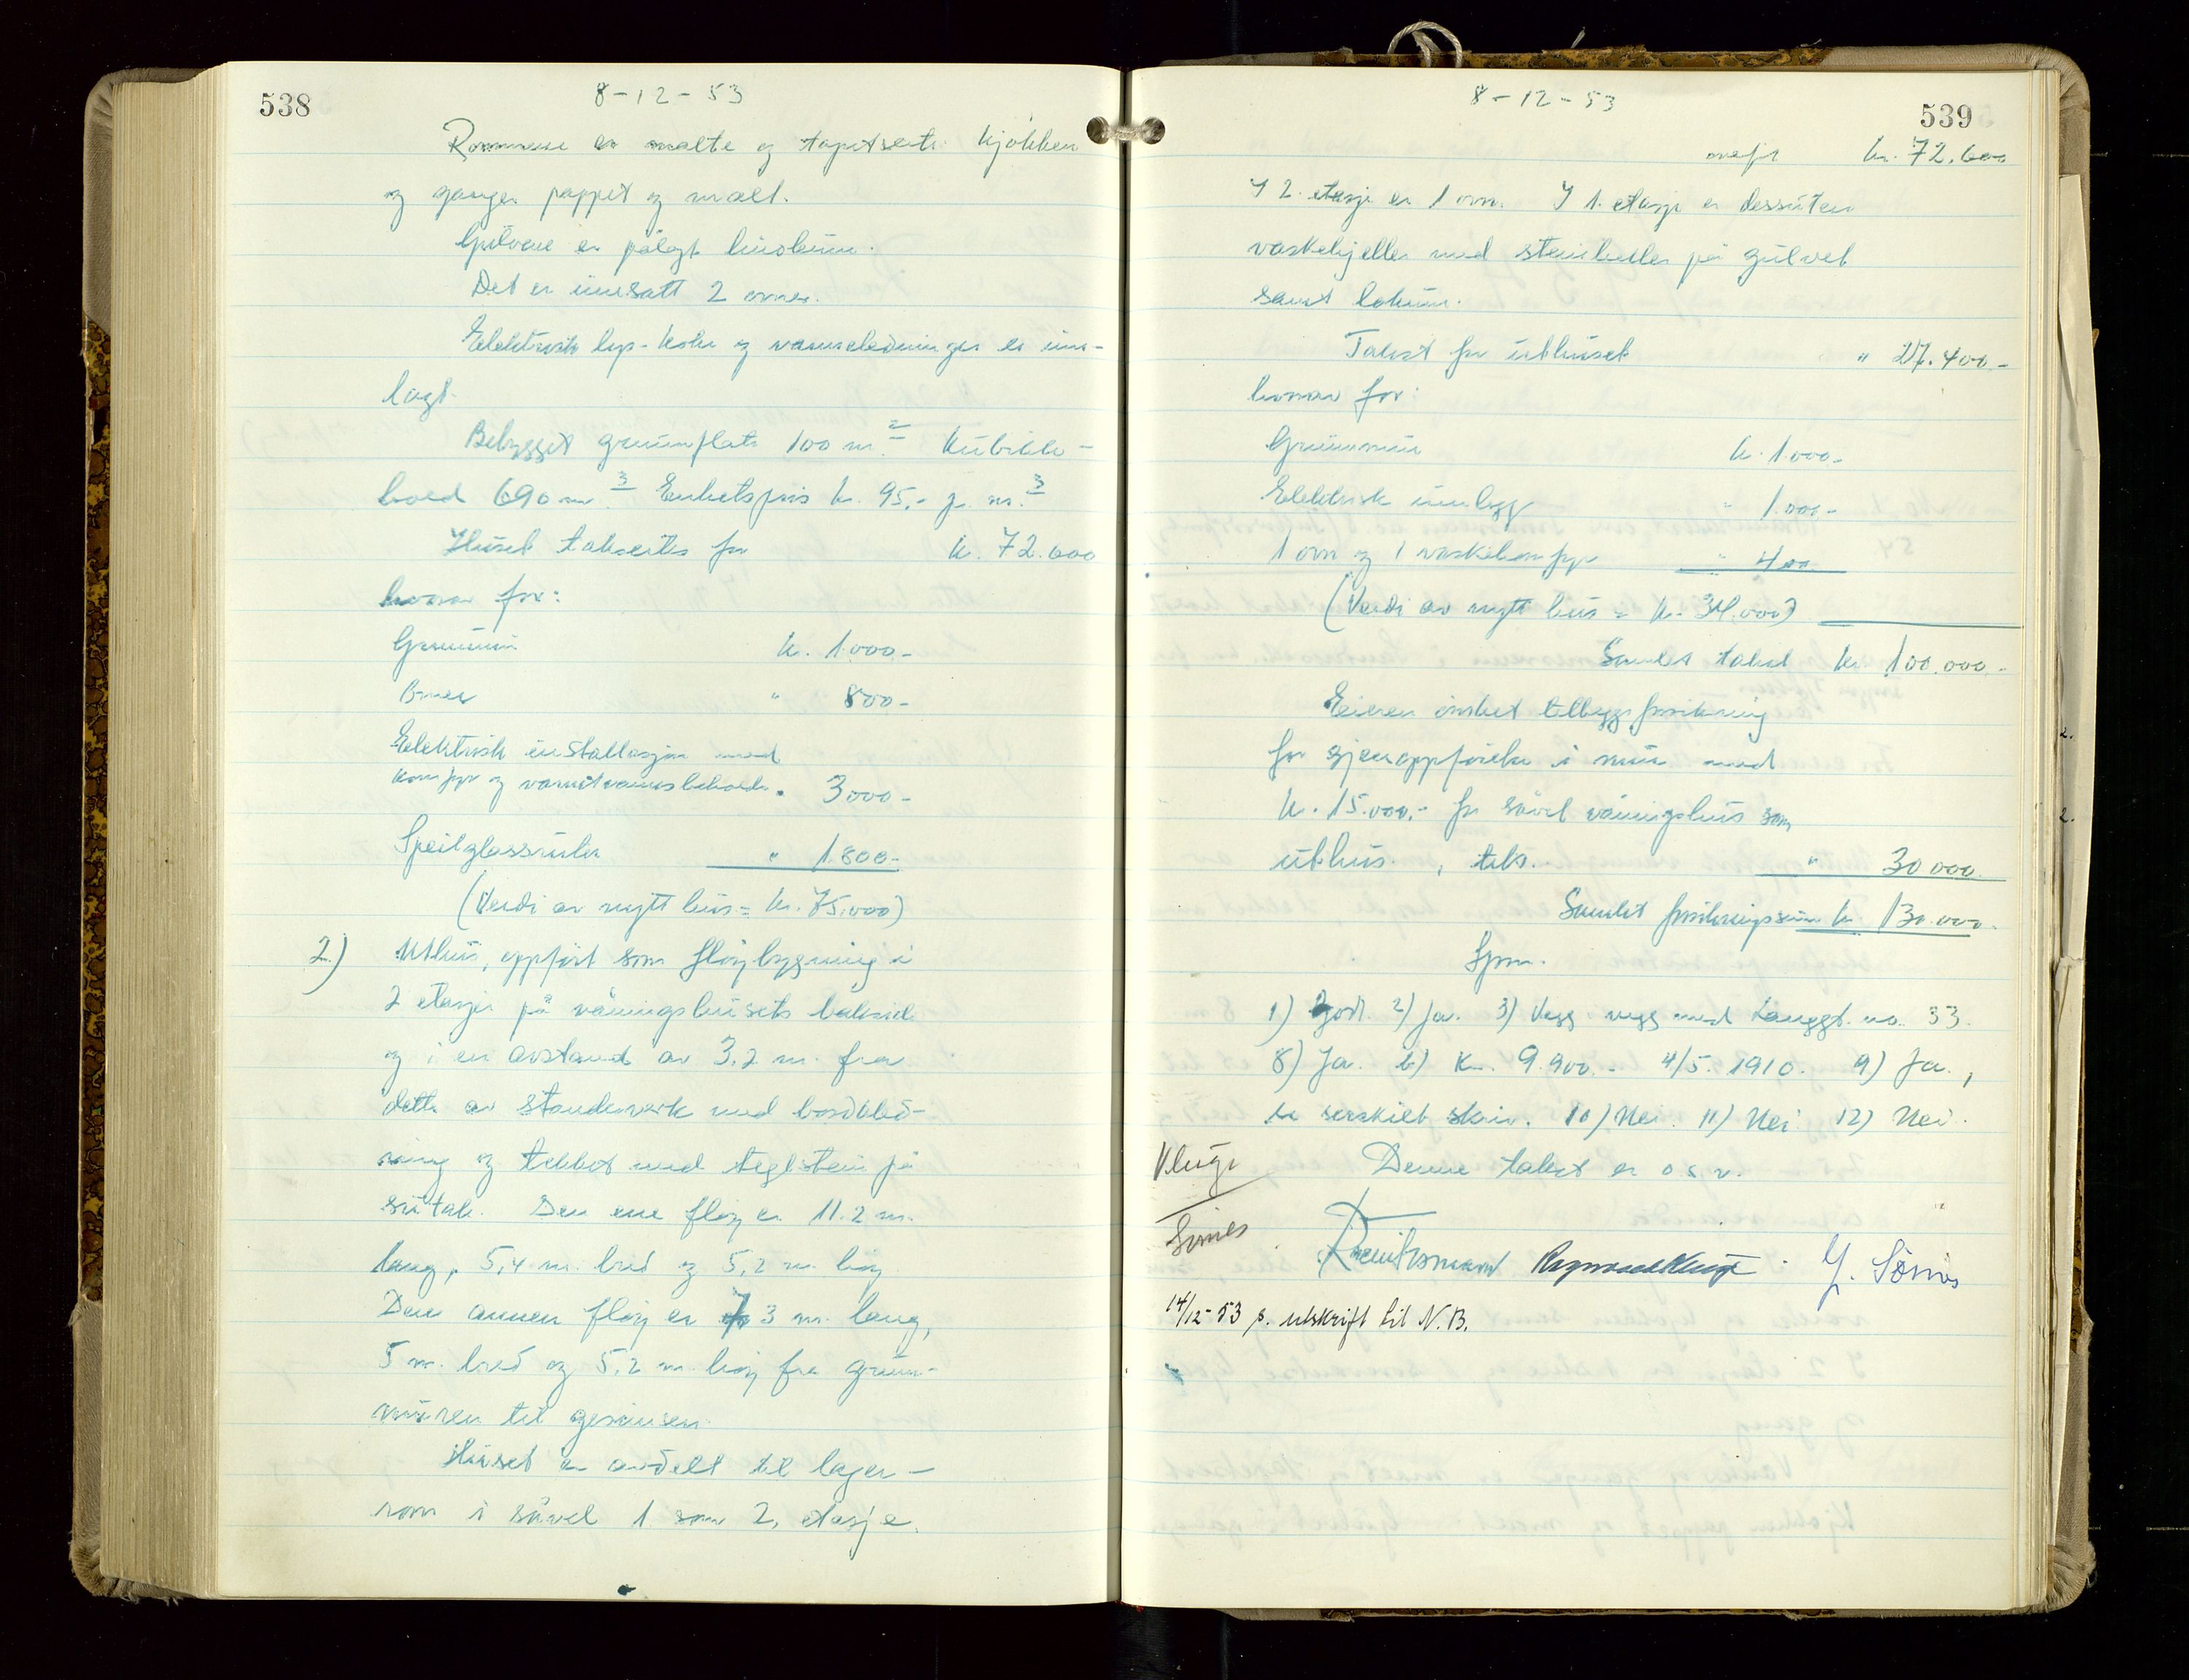 538
8-12-53
Rommene er malte og tapetserte. Kjøkken
og ganger pappet og malt.
Gulvene er pålagt linoleum.
Det er innsatt 2 ovner.
Elektrisk lys- koke og varmeledninger er inn-
lagt.
Bebygget grunnflate 100 m². Kubikk-
hold 690 m³. Enhetspris kr. 95,- p. m.³
Huset takseres for kr. 72.600
hvorav for:
Grunnmur kr. 1.000-
Ovner " 800-
Elektrisk installasjon med
komfyr og varmtvannsbehold. " 3000-
Speilglassruter " 1800-
(Verdi av nytt hus = kr. 75.000)
2.) Uthus, oppført som fløybygning i
2 etasjer på våningshusets bakside
og i en avstand av 3,2 m. fra
dette av stenderverk med bordkled-
ning og tekket med teglstein på
sutak. Den ene fløy er 11.2 m.
lang, 5,4 m. bred og 5,2 m. høy
Den annen fløy er 7,3 m. lang,
5 m. bred og 5,2 m. høy fra grunn-
muren til gesimsen.
Huset er avdelt til lager-
rom i såvel 1 som 2. etasje.
539
8-12-53
overført kr. 72.600
I 2. etasje er 1 ovn. I 1. etasje er dessuten
vaskekjeller med steinheller på gulvet
samt lokum.
Takst for uthuset " 27.400.-
hvorav for:
Grunnmur kr. 1.000-
Elektrisk innlegg " 1.000-
1 ovn og 1 vaskekomfyr " 400
(Verdi av nytt hus = kr. 34.000)
Samlet takst kr. 100.000.-
Eieren ønsket tilleggsforsikring
for gjenoppførelse i mur med
kr. 15.000.- for såvel våningshus som
uthus, tils. " 30000
Samlet forsikringssum kr. 130.000.
Spm.
1) Godt. 2) Ja. 3) Vegg i vegg med Langgt. no. 33.
8) Ja. b) Kr. 9.900.- 4/5. 1910. 9) Ja.,
se serskilt skriv. 10) Nei. 11) Nei. 12) Nei.
Kluge Denne takst er o s v.
Sømes
Ragnvald Kluge. Y. Sömes
14/12-53 s. utskrift til N.B.